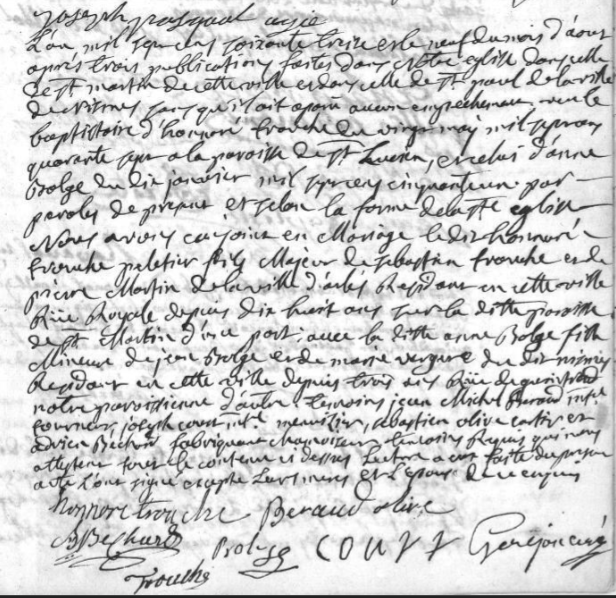 joseph prasqual agie
L'an mil sept cens soixante treize et le neuf du mois d'aout
apres trois publications faites dans nôtre eglise dans celle
de st martin de cette ville et dans celle de st paul de la ville
de nismes sans qu'il ait aparu aucun empechement vu le
baptistaire d'honnoré trouche du vingt may mil sept cens
quarante sept a la paroisse de st Lucien, et celui d'anne
Bolge du dix janvier mil sept cens cinquante un par
paroles de present et selon la forme de la ste eglise
Nous avons conjoint en Mariage le dit honnoré
trouche peletier fils Majeur de sebastien trouche et de
pierre Martin de la ville d'arles Residant en cette ville
Rüe Royale depuis dix huit ans sur la ditte paroisse
de st Martin d'une part, avec la ditte anne Bolge fille
Mineure de jean Bolge et de marie vergure du dit nismes
Residant en cette ville depuis trois ans Rüe de
notre paroissienne d'autre temoins jean Michel Beraud
tourneur, joseph court menuisier, sebastien olive cartier et
adrien Bechard fabriquant temoins Requis qui nous
attestent tout le contenu ci dessus Lecture a eux faite du present
acte L'ont signé excepté Les meres et L'epouse de ce enquis
honnore trouche Beraud olive
A Bechard Bolge COURT curé
Trouche